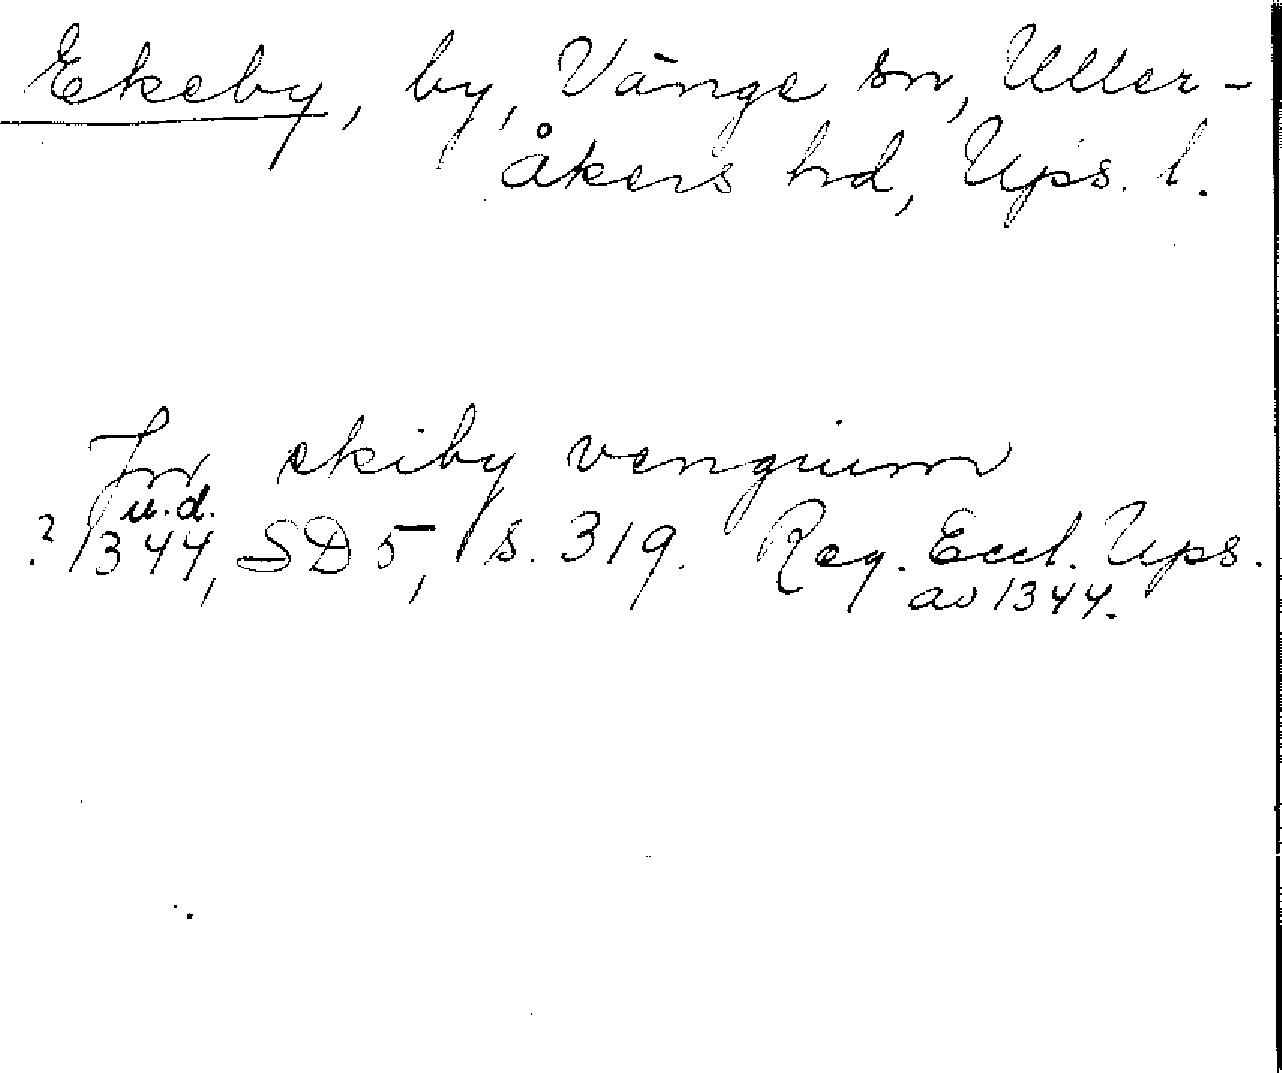 Ekeby, by, Vänge sn, Uller-
åkers hd, Ups. l.
In ekiby vengium
u.d.
? 1344, SD 5, s. 319. Reg. Eccl. Ups.
av 1344.